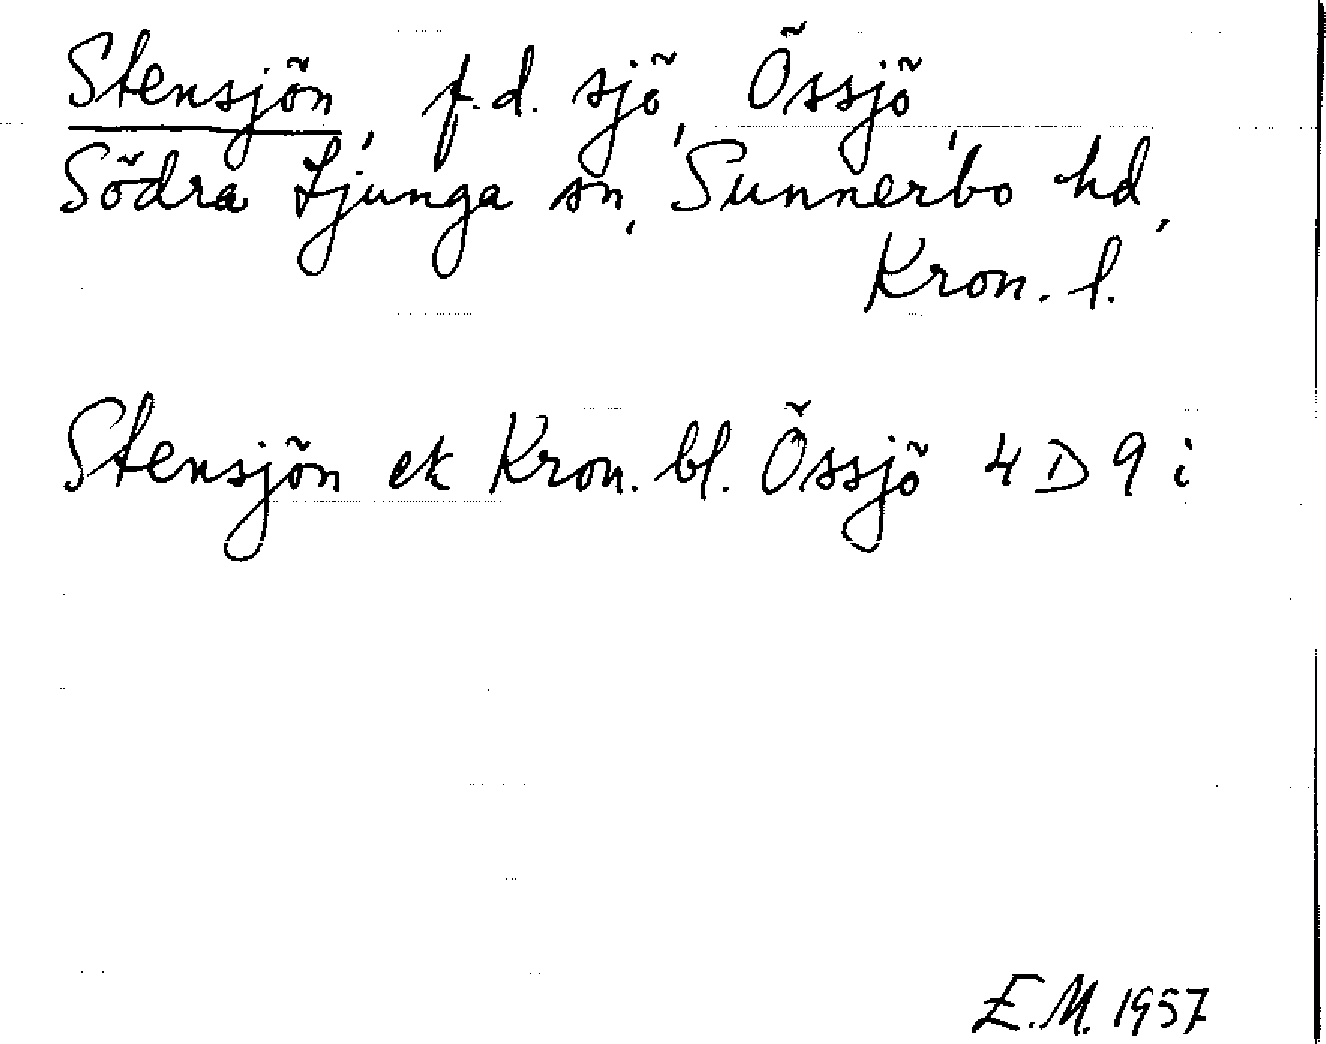 Stensjön, f.d. sjö, Össjö,
Södra Ljunga sn, Sunnerbo hd,
Kron. l.
Stensjön ek Kron. bl. Össjö 4 D 9 i
E.M. 1957